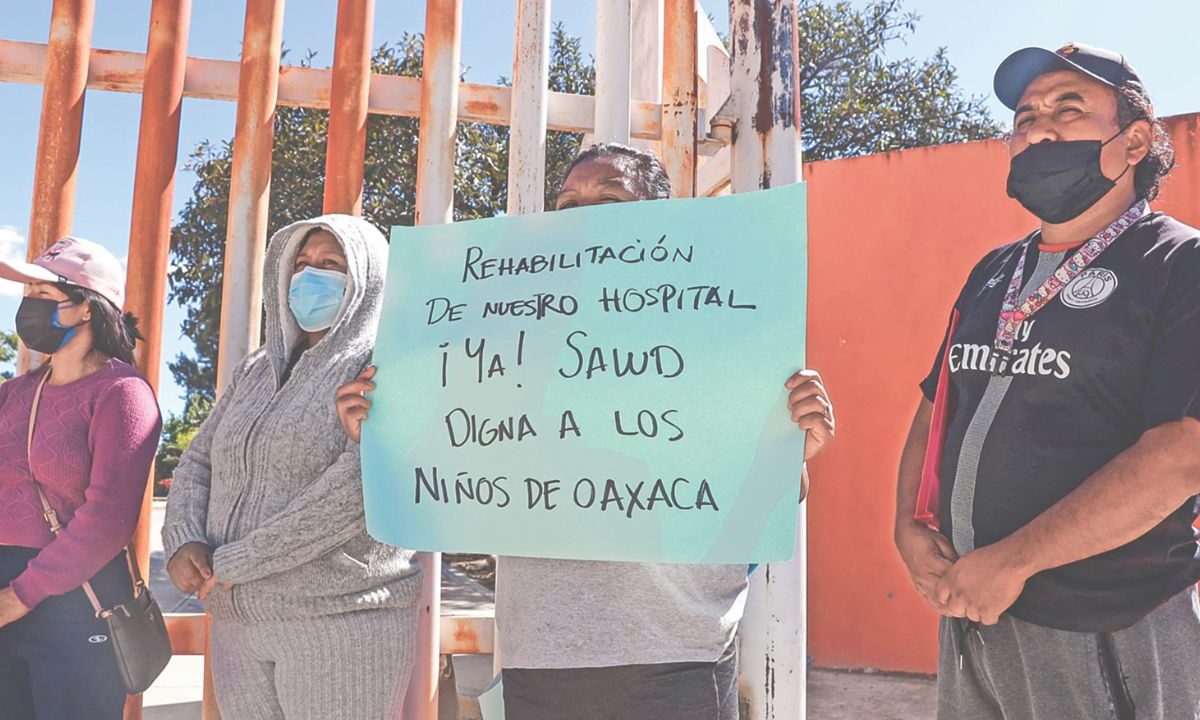 REHABILITACIÓN
DE NUESTRO HOSPITAL
¡YA! SALUD
DIGNA A LOS
NIÑOS DE OAXACA
PARIS
Fly
Emirates